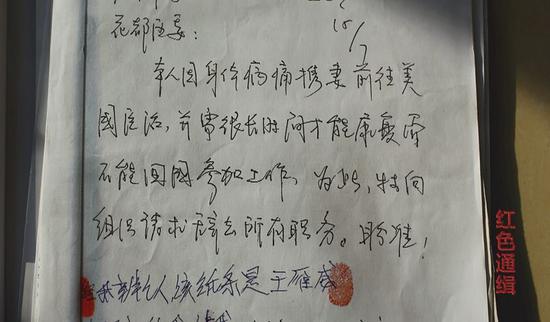 花都区委:
15/7
本人因身体病痛携妻前往美
国医治,并需很长时间才能康复而
不能回国参加工作,为此,特向
组织请求辞去所有职务。盼准!
经我辨认该纸条是王雁威
红色通缉